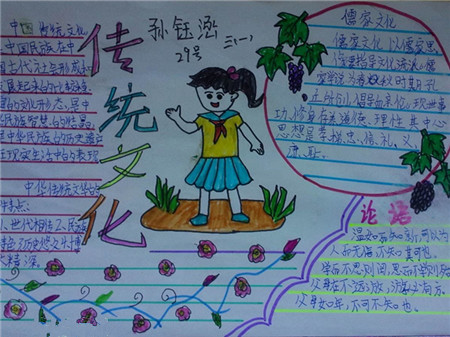 传统文化
孙钰涵
29号
三(一)
中国传统文化
中国民族在中
国古代社会形成和
定的文化形态,是中
华民族智慧的结晶,
是中华民族的历史遗产
在现实生活中的展现
中华传统文化的
特点:
1、世代相传 2、民族
特色 3、历史悠久 4、博
大精深。
儒家文化
儒家文化,以儒家思
想为指导文化流派。儒
家学说为春秋时期孔
丘所创,倡导血亲仁,现世事
功,修身存养,道德、理性,其中心
思想是孝、悌、忠、信、礼、义、
廉、耻。
论语
温故而知新,可以为
人而无信,不知其可也。
学而不思则罔,思而不学则殆
父母在,不远游,游必有方。
父母之年,不可不知也。